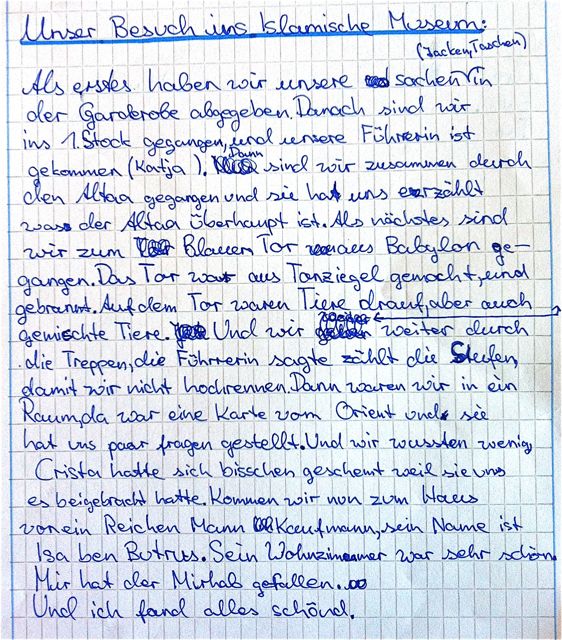 Unser Besuch ins Islamische Museum:
(Jacken, Taschen)
Als erstes haben wir unsere sachen in
der Garderobe abgegeben. Danach sind wir
ins 1. Stock gegangen, und unsere Führerin ist
gekommen (Katja). Dann sind wir zusammen durch
den Altaa gegangen und sie hat uns erzählt
was der Altaa überhaupt ist. Als nächstes sind
wir zum Blauen Tor aus Babylon ge-
gangen. Das Tor war aus Tonziegel gemacht, und
gebrannt. Auf dem Tor waren Tiere drauf, aber auch
gemischte Tiere. Und wir weiter durch
die Treppen, die Führrerin sagte zählt die Stufen,
damit wir nicht hochrennen. Dann waren wir in ein
Raum, da war eine Karte vom Orient und sie
hat uns paar fragen gestellt. Und wir wussten wenig,
Crista hatte sich bisschen geschemt weil sie uns
es beigebracht hatte. Kommen wir nun zum Haus
von ein Reichen Mann Kaufmann, sein Name ist
Isa ben Butrus. Sein Wohnzimmer war sehr schön.
Mir hat der Mirhab gefallen.
Und ich fand alles schönd.